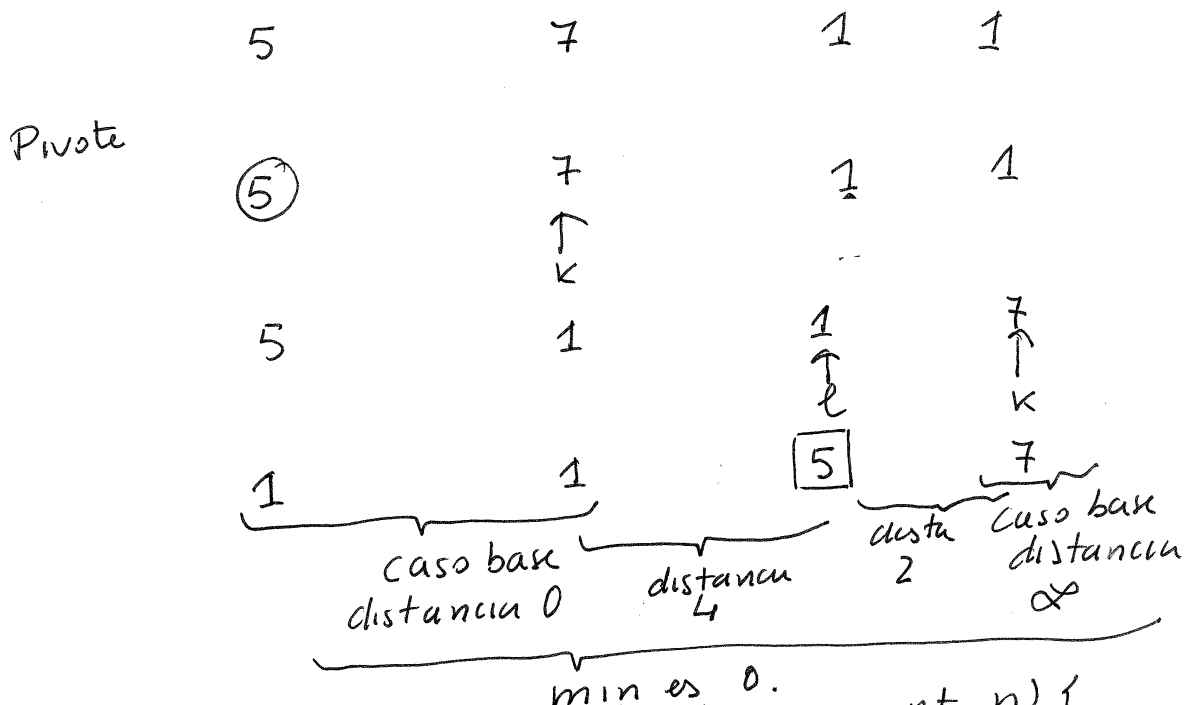 5 7 1 1
Pivote
5 7 1 1
K
5 1 1 7
l K
1 1 5 7
caso base distancia 0
distancia 4
dista 2
caso base distancia ∞
min es 0.
nt n) {